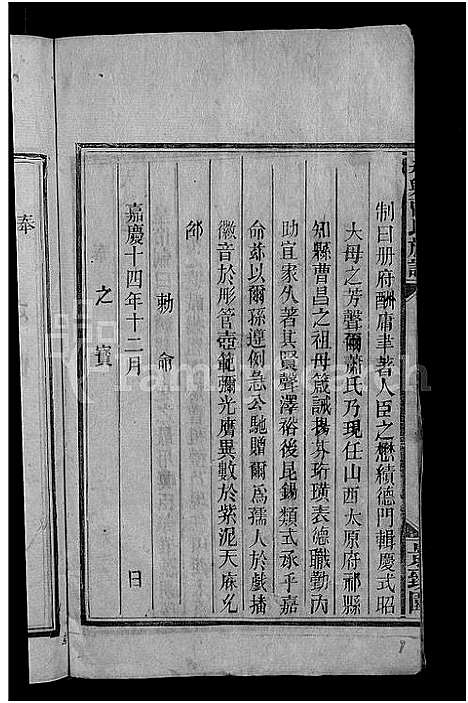 制曰册府酬庸聿著人臣之懋績德門輯慶式昭
大母之芳聲爾蕭氏乃現任山西太原府祁縣
知縣曹昌之祖母箴誡揚芬珩璜表德職勤内
助宜家久著其賢聲澤裕後昆錫類式承乎嘉
命茲以爾孫遵例急公馳贈爾爲孺人於戲播
徽音於彤管壺範彌光膺異數於紫泥天庥允
卲
勅命
嘉慶十四年十二月 日
之寳
奉